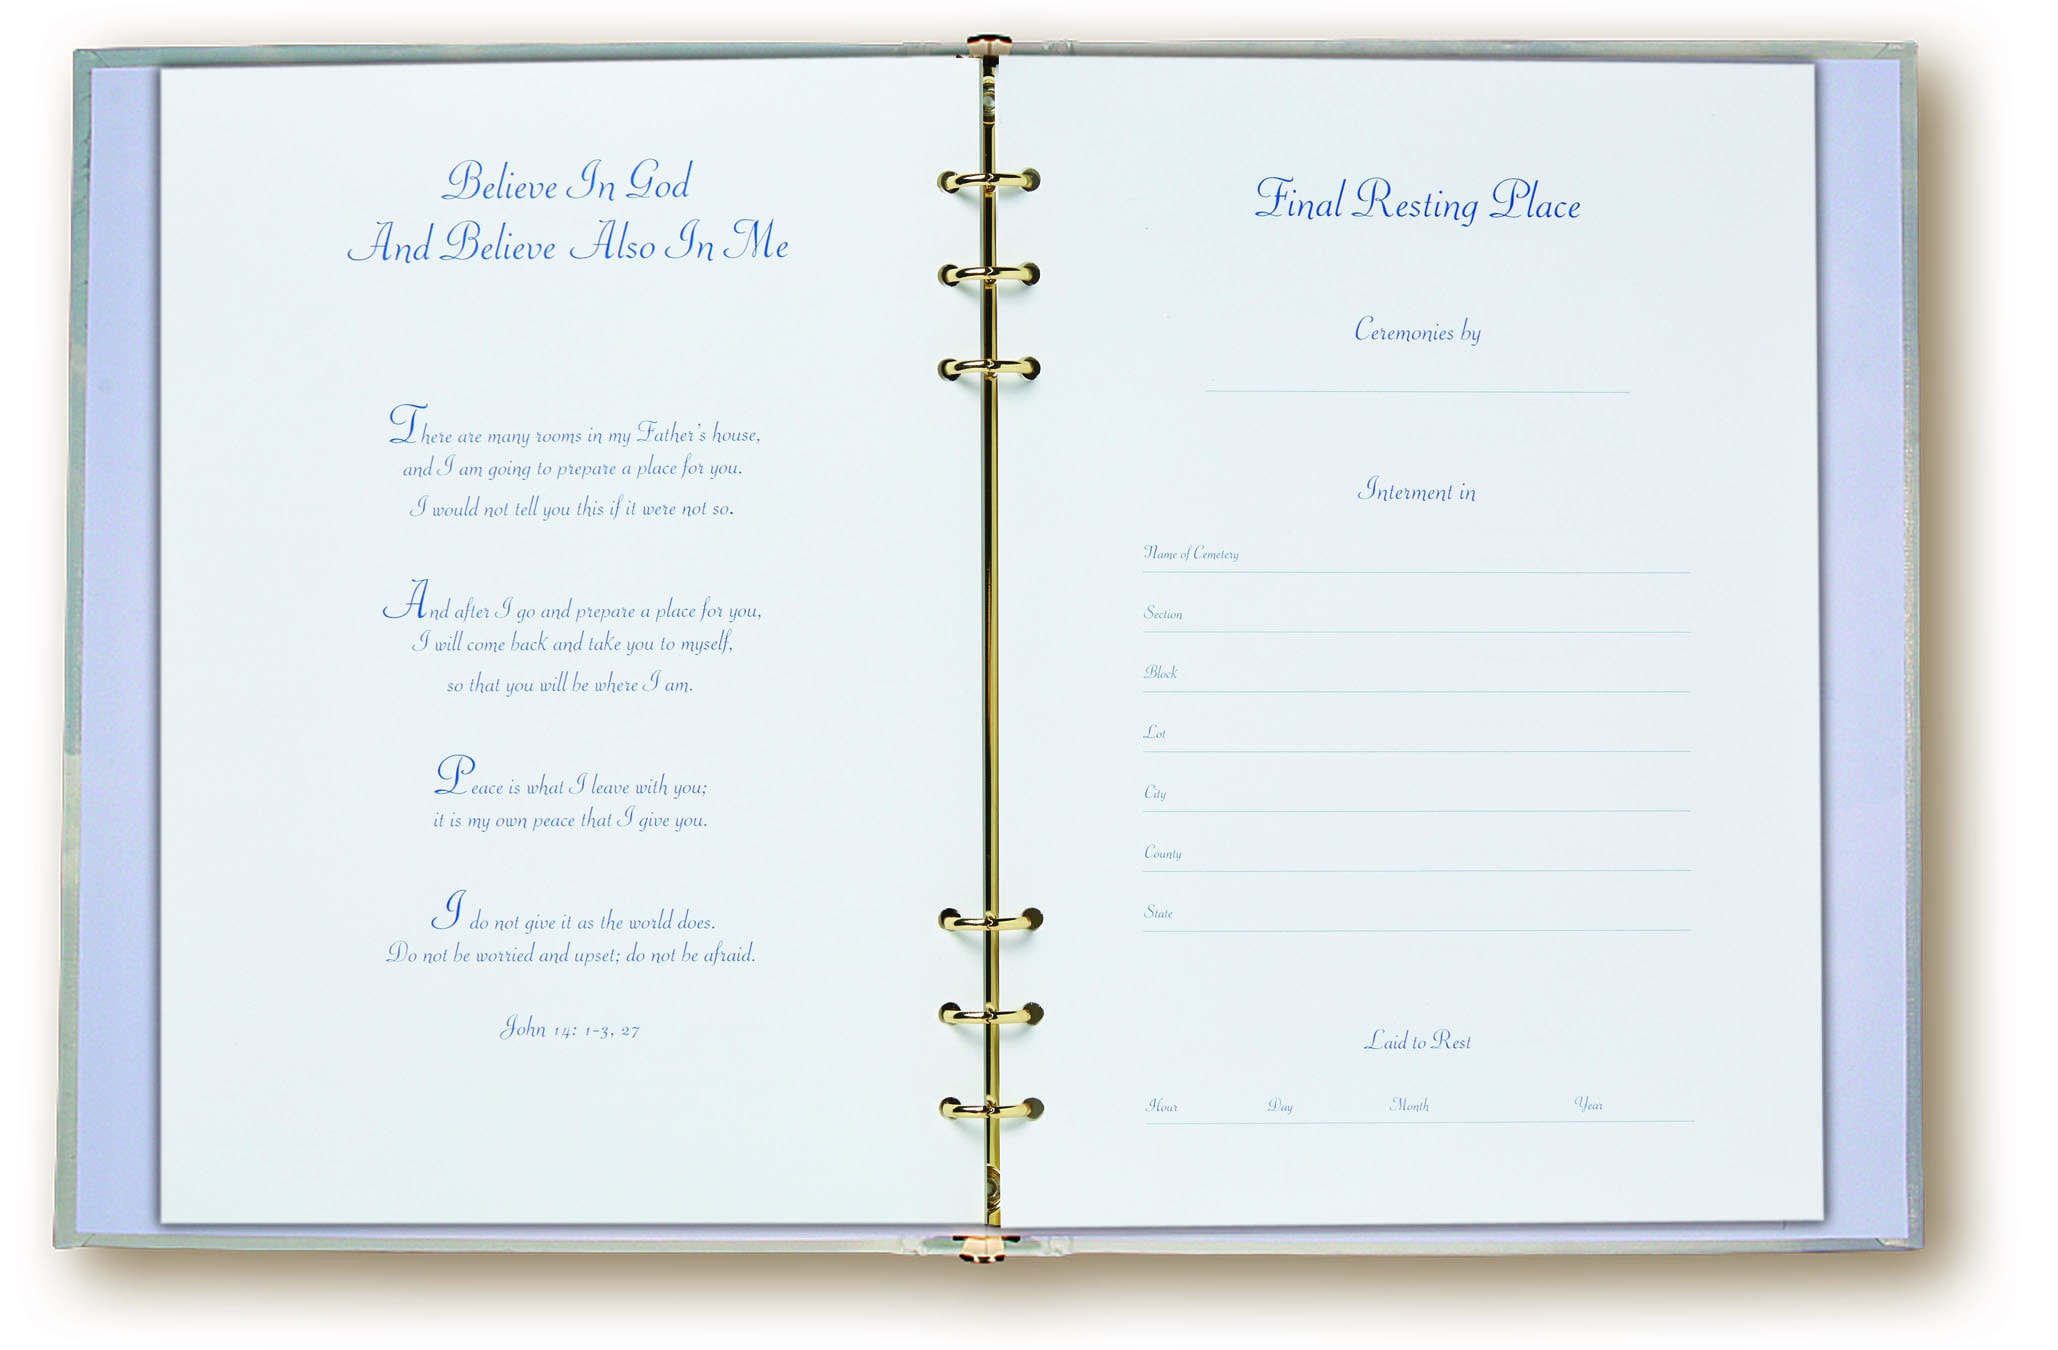 Believe In God
And Believe Also In Me
There are many rooms in my Father's house,
and I am going to prepare a place for you.
I would not tell you this if it were not so.
And after I go and prepare a place for you,
I will come back and take you to myself,
so that you will be where I am.
Peace is what I leave with you;
it is my own peace that I give you.
I do not give it as the world does.
Do not be worried and upset; do not be afraid.
John 14: 1-3, 27
Final Resting Place
Ceremonies by
Interment in
Name of Cemetery
Section
Block
Lot
City
County
State
Laid to Rest
Hour Day Month Year